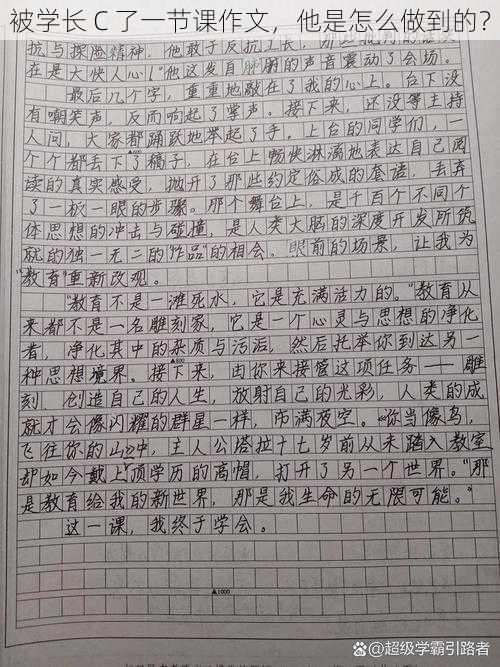 被学长 C 了一节课作文，他是怎么做到的？
抗与探险精神。他敢于反抗工长，那些批判的话实
在是大快人心！"他这发自肺腑的声音震动了会场。
最后几个字，重重地敲在了我的心上。台下没
有嘲笑声，反而响起了掌声。接下来，还没等主持
人问，大家都踊跃地举起了手。上台的同学们，一
个个都丢下了稿子，在台上畅快淋漓地表达自己阅
读的真实感受，抛开了那些约定俗成的套话，丢弃
了一板一眼的步骤。那个舞台上，是千百个不同个
体思想的冲击与碰撞，是人类大脑的深度开发所筑
就的独一无二的"作品"的相会。眼前的场景，让我为
"教育"重新改观。
"教育不是一滩死水，它是充满活力的。"教育从
来都不是一名雕刻家，它是一个心灵与思想的净化
者，净化其中的杂质与污垢，然后托举你到达另一
种思想境界。接下来，由你来接管这项任务——雕
▲800
刻，创造自己的人生，放射自己的光彩，人类的成
就才会像闪耀的群星一样，布满夜空。"你当像鸟，
飞往你的山"中，主人公塔拉十七岁前从未踏入教室
却如今戴上顶学历的高帽，打开了另一个世界。"那
是教育给我的新世界，那是我生命的无限可能。"
这一课，我终于学会。
▲1000
@超级学霸引路者